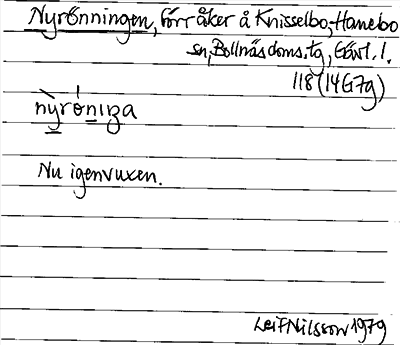 Nyrönningen, förr åker å Knisselbo, Hanebo
sn, Bollnäs doms. tg, Gävl. l.
118 (14G7g)
nyróniga
Nu igenvuxen.
Leif Nilsson 1979